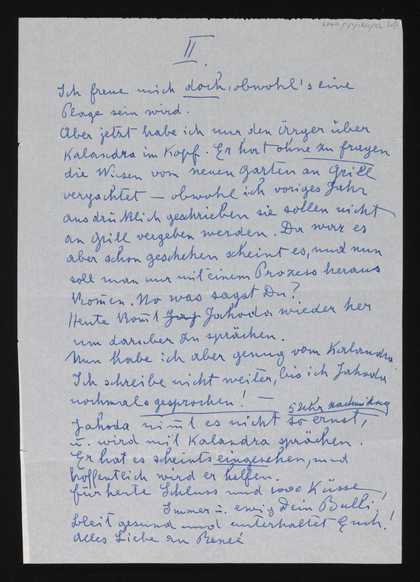 II
Ich freue mich doch, obwohl's eine
Plage sein wird.
Aber jetzt habe ich nur den Ärger über
Kalandra im Kopf. Er hat ohne zu fragen
die Wiesen vom neuen Garten an Grill
verpachtet – obwohl ich voriges Jahr
ausdrücklich geschrieben sie sollen nicht
an Grill vergeben werden. Da war es
aber schon geschehen scheint es, und nun
soll man nur mit einem Prozess heraus
können. No was sagst Du?
Heute komt Jahoda wieder her
um darüber zu sprächen.
Nun habe ich aber genug vom Kalandra
Ich schreibe nicht weiter, bis ich Jahoda
nochmals gesprochen! –
5 Uhr nachmittag
Jahoda nimt es nicht so ernst,
u. wird mit Kalandra sprächen.
Er hat es scheints eingesehen, und
hoffentlich wird er helfen.
Für heute Schluss und 1000 Küsse!
Immer u. ewig Dein Bulli!
bleibt gesund und unterhaltet Euch!
Alles Liebe an